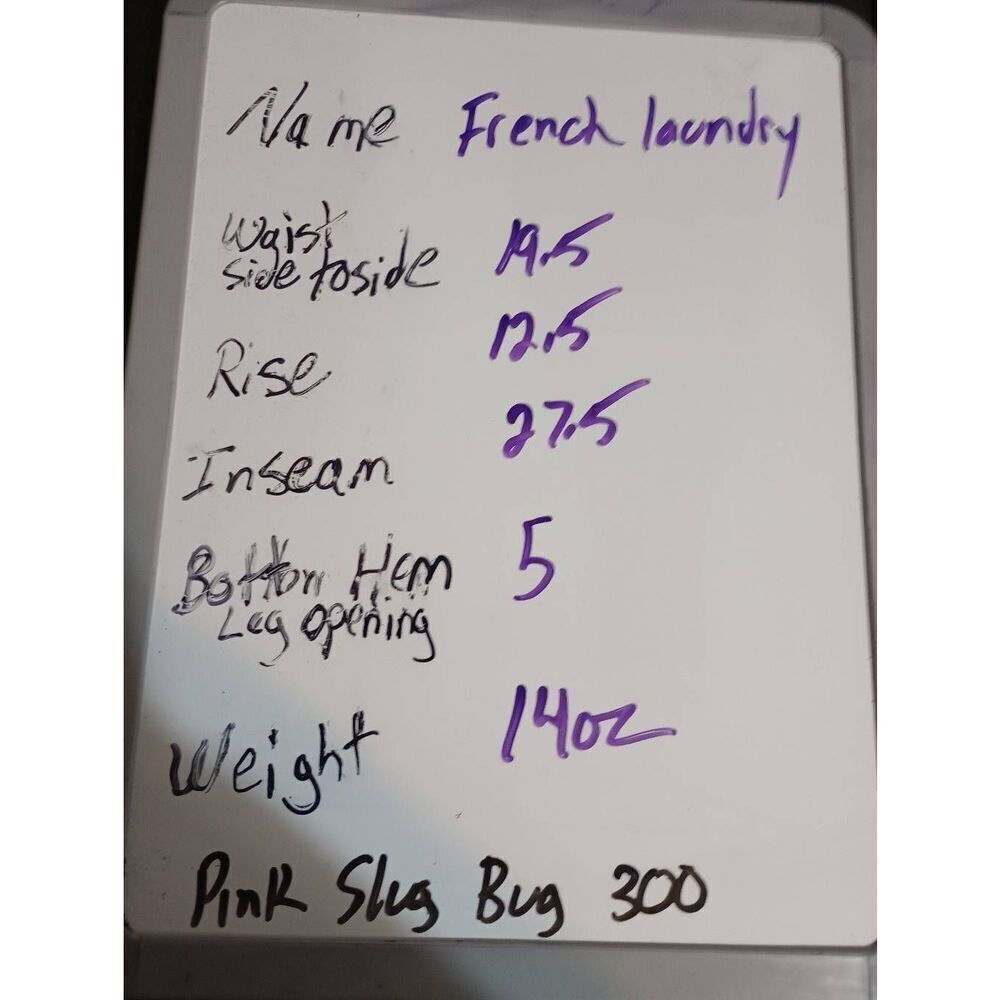 Name French laundry
Waist
side to side 19.5
Rise 12.5
Inseam 27.5
Bottom Hem 5
Leg opening
Weight 14oz
Pink Slug Bug 300